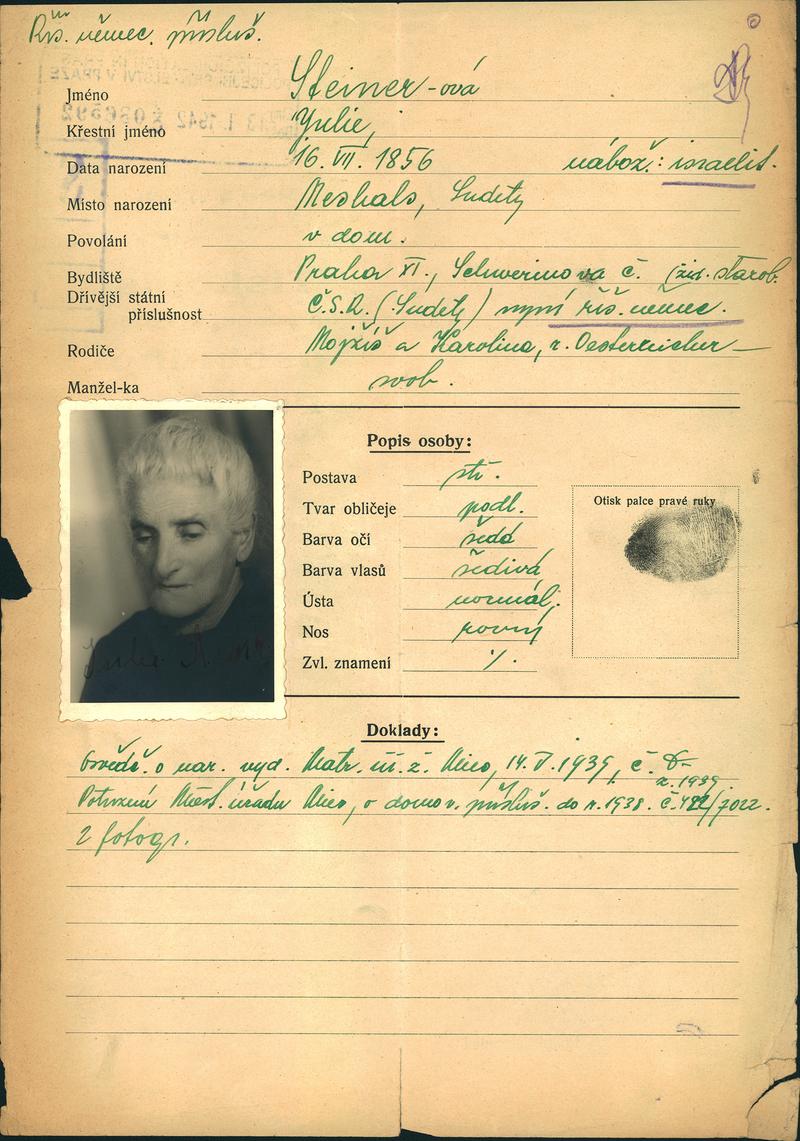 Říš. němec. přísluš.
Jméno Steiner-ová
Křestní jméno Julie,
Data narození 16. VII. 1856 nábož.: israelit.
Místo narození Meshals, Sudety
Povolání v dom.
Bydliště Praha XI., Schwerinova č. (žid. starob.
Dřívější státní
příslušnost Č.S.R. (Sudety) nyní říš. němec.
Rodiče Mojžíš a Karolina, r. Oesterreicher
Manžel-ka svob.
Popis osoby:
Postava stř.
Tvar obličeje podl.
Barva očí šedá
Barva vlasů šedivá
Ústa normál.
Nos rovný
Zvl. znamení ٪.
Otisk palce pravé ruky
Doklady:
Osvědč. o nar. vyd. Matr. úř. ž. 14. V. 1939, č.
z. 1939.
Potvrzení Měst. úřadu o domov. přísluš. do r. 1938. č. 7022.
2 fotogr.